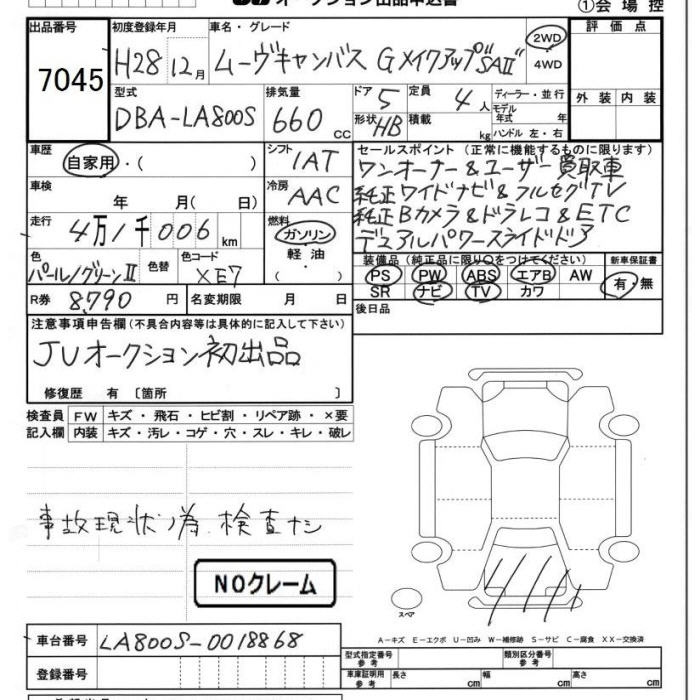 オークション出品申込書
①会場控
出品番号
7045
初度登録年月
H28 12月
車名・グレード
ムーヴキャンバス Gメイクアップ"SAⅡ"
2WD
4WD
評価点
外装 内装
型式
DBA-LA800S
排気量
660 cc
ドア 5
形状 HB
定員 4人
積載 kg
ディーラー・並行
モデル年式 年
ハンドル 左・右
車歴
自家用・( )
シフト
IAT
車検
年 月( 日)
冷房
AAC
走行
4万1千006km
燃料
ガソリン
軽油
・
色
パールノグリーンⅡ
色替
色コード
XE7
R券 8,790円
名変期限 月 日
セールスポイント (正常に機能するものに限ります)
ワンオーナー&ユーザー買取車
純正ワイドナビ&フルセグTV
純正Bカメラ&ドラレコ&ETC
デュアルパワースライドドア
装備品(純正品に限り○をつけてください)
PS PW ABS エアB AW
SR ナビ TV カワ
新車保証書
有・無
後日品
注意事項申告欄(不具合内容等は具体的に記入して下さい)
JUオークション初出品
修復歴 有 〔箇所 〕
検査員記入欄
FW キズ・飛石・ヒビ割・リペア跡・×要
内装 キズ・汚レ・コゲ・穴・スレ・キレ・破レ
事故現状ノ為 検査ナシ
NOクレーム
スペア
A－キズ E－エクボ U－凹み W－補修跡 S－サビ C－腐食 XX－交換済
車台番号 LA800S-0018868
登録番号
型式指定番号 参考
類別区分番号 参考
車庫証明用 参考 長さ cm 幅 cm 高さ cm